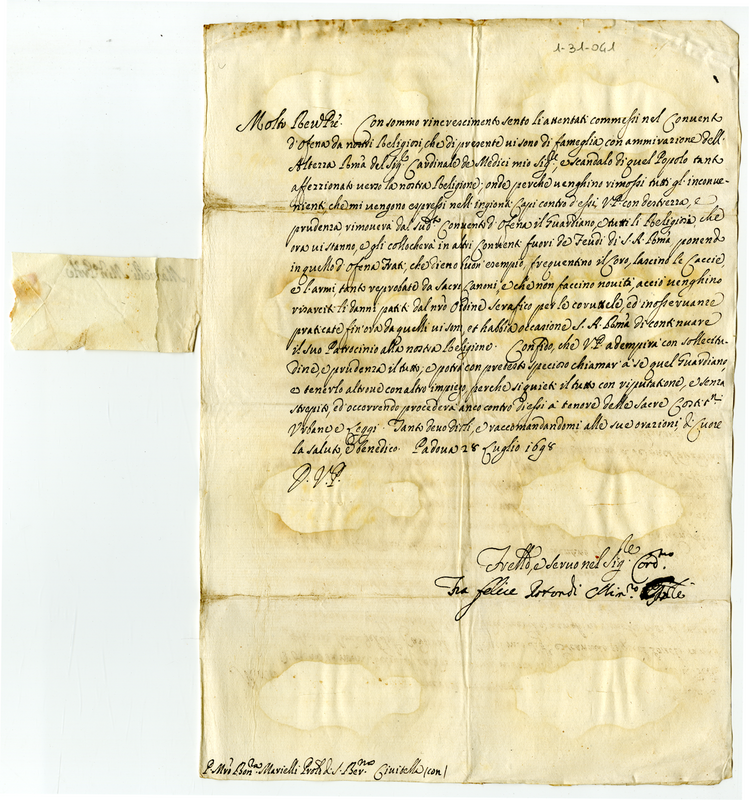 1-31-041
Molto Revd Pre. Con sommo rincrescimento sento li attentati commessi nel Convento
d'Ofena da nostri Religiosi, che di presente vi sono di fameglia con ammirazione dell'
Altezza Roma del Sigr Cardinale de Medici mio Sigre, e scandalo di quel Popolo tanto
affezzionato verso la nostra Religione; onde perchè venghino rimossi tutti gl'inconve-
nienti che mi vengono espressi nell' ingionti Capi contro d'essi, V.P. con destrezza, e
prudenza rimoverà dal sudto Convento d'Ofena il Guardiano, e tutti li Religiosi, che
ora vi stanno, e gli collocherà in altri Conventi fuori de Feudi di S.A. Roma, ponendo
in quello d'Ofena Frati, che dieno buon esempio, frequentino il Coro, lascino le Caccie,
e l'armi, tanto reprobate da Sacri Canoni, e che non faccino novità, acciò venghino
risarciti li danni patiti dal nro Ordine Serafico per le corruttele, ed inosservanze
praticate fin'ora da quelli vi son, et habbia occasione S.A. Roma di continuare
il suo Patrocinio alla nostra Religione. Confido, che V.P. adempirà con sollecitu-
dine, e prudenza il tutto; e potrà con pretesto specioso chiamar' à se quel Guardiano,
e tenerlo altrove con altro impiego, perche si quieti il tutto con riputatione, e senza
strepito, ed occorrendo procederà anco contro d'essi à tenore delle Sacre Costitni
Urbane e Leggi. Tanto devo dirli, e raccomandandomi alle sue orazioni di Cuore
la saluto, e benedico. Padova 28 Luglio 1698
D. V. P.
Fretto, e servo nel Sigre Cordmo
Fra Felice Rotondi Minro Gnle
P. Mro Bonra Marielli Prole di S. Berno Civitella (con)